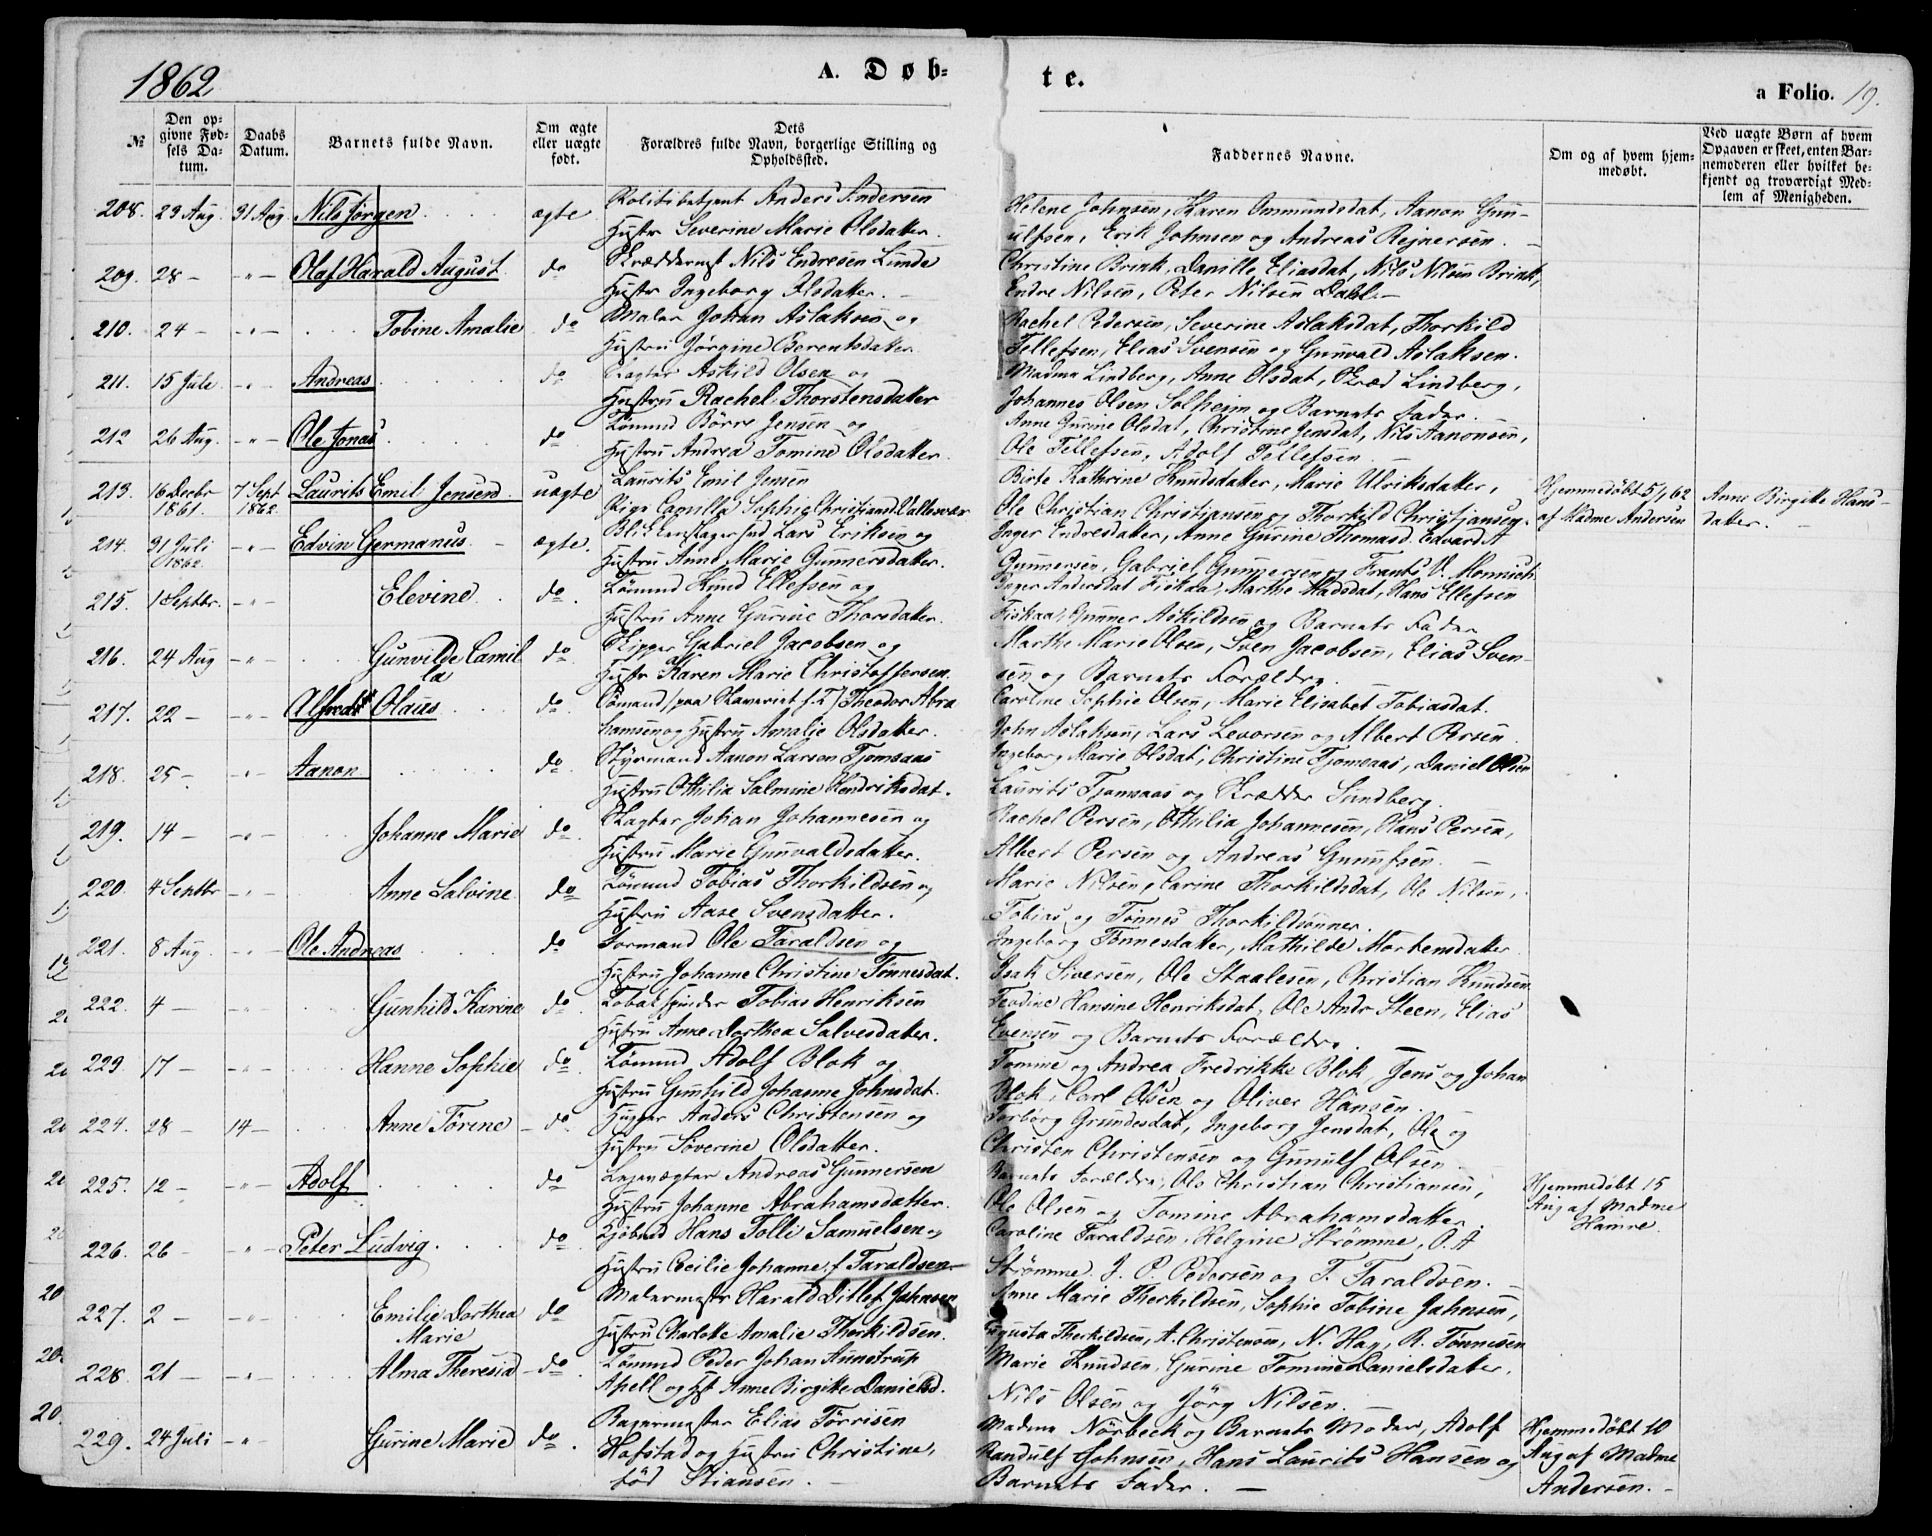 1862
A. Døb-
te.
a Folio. 19.
№
Den op-
givne Fød-
sels Da-
tum.
Daabs
Datum.
Barnets fulde Navn.
Om ægte
eller uægte
født.
Dets
Forældres fulde Navn, borgerlige Stilling og
Opholdssted.
Faddernes Navne.
Om og af hvem hjem-
medøbt.
Ved uægte Børn af hvem
Opgaven er skeet, enten Bar-
nemoderen eller hvilket be-
kjendt og troværdigt Med-
lem af Menigheden.
208. 23 Aug. 31 Aug Nils Jørgen ægte Politibetjent Anders Andersen
Hustr Severine Marie Olsdatter.
Helene Johnsen, Karen Ommundsdat, Aanon Gun-
ulfsen, Erik Johnsen og Andreas Rejnersen.
209. 28 - -"- Olaf Harald August do Skræddermst Nils Endresen Lunde
Hustr Ingeborg Olsdatter.
Christine Brink, Danille Eliasdat, Nils Nilsen Brink,
Endre Nilsen, Peter Nilsen Dahl.
210. 24 - -"- Tobine Amalie do Maler Johan Aslaksen og
Hustru Jørgine Berentsdatter
Rachel Pedersen, Severine Aslaksdat, Thorkild
Tellefsen, Elias Svensen og Gunvald Aslaksen.
211. 15 Jule -"- Andreas do Slagter Askild Olsen og
Hustru Rachel Thorstensdatter
Madme Lindberg, Anne Olsdat, Skræd Lindberg,
Johannes Olsen Solheim og Barnets Fader.
212 26 Aug. -"- Ole Jonas do Tømmd Børre Jensen og
Hustru Andrea Tomine Olsdatter
Anne Gurine Olsdat, Christine Jensdat, Nils Aanonsen,
Ole Tellefsen, Adolf Tellefsen
213. 16 Decbr 1861. 7 Sept 1862. Laurits Emil Jensen uægte Laurits Emil Jensen
Pige Camilla Sophie Christiansd. Vallesvær
Birte Kathrine Knudsdatter, Marie Ulriksdatter,
Ole Christian Christiansen og Thorkild Christiansen.
Hjemmedøbt 5/1 62
af Madme Andersen
Anne Birgitte Hans-
datter.
214. 31 Juli 1862. -"- Edvin Germanus ægte. Blikkenslagersvd Lars Eriksen og
Hustru Anne Marie Gunnersdatter.
Inger Endresdatter, Anne Gurine Thomasd. Edvard A
Gunnersen, Gabriel Gunnersen og Frants V. Monnich
215. 1 Septbr. -"- Elevine do. Tømmd Knud Ellefsen og
Hustru Anne Gurine Thorsdatter.
Inger Andersdat Fiskaa, Marthe Madsdat, Hans Ellefsen
Fiskaa, Gunner Askildsen og Barnets Fader
216. 24 Aug -"- Gunvilde Camil
la do Skipper Gabriel Jacobsen og
Hustr Karen Marie Christoffersen.
Marthe Marie Olsen, Sven Jacobsen, Elias Sven-
sen og Barnets Forældre.
217. 22 - -"- Alfred Olaus do. Sømand (paa Skaveriet f.T.) Theodor Abra
hamsen og Hustru Amalie Olsdatter.
Caroline Sophie Olsen, Marie Elisabet Tobiasdat.
John Aslaksen, Lars Levorsen og Albert Persen
218. 25 - -"- Aanon do. Styrmand Aanon Larsen Tjomsaas
Hustru Othilia Salmine Hendriksdat.
Ingeborg Marie Olsdat, Christine Tjomsaas, Daniel Olsen
Laurits Tjomsaas og Skrædder Sundberg.
219. 14 - -"- Johanne Marie do. Slagter Johan Johannesen og
Hustru Marie Gunvaldsdatter.
Rachel Persen, Othilia Johannesen, Hans Persen,
Albert Persen og Andreas Gunulfsen.
220. 4 Septbr -"- Anne Salvine do Tømmd Tobias Thorkildsen og
Hustru Aase Svensdatter.
Marie Nilsen, Carine Thorkildsdat, Ole Nilsen,
Tobias og Tønnes Thorkildsønner.
221. 8 Aug. -"- Ole Andreas do Formand Ole Taraldsen og
Hustru Johanne Christine Tønnesdat.
Ingeborg Tønnesdatter, Mathilde Mortensdatter
Isak Siversen, Ole Staalesen, Christian Knudsen
222. 4 - -"- Gunhild Karine do. Tobakspinder Tobias Henriksen
Hustru Anne Dorthea Salvesdatter.
Teodine Hansine Henriksdat, Ole Andr Steen, Elias
Evensen og Barnets Forældre.
223. 17 - -"- Hanne Sophie do. Tømmd Adolf Blok og
Hustru Gunhild Johanne Johnsdat.
Tomine og Andrea Fredrikke Blok, Jens og Johan
Blok, Carl Olsen og Oliver Hansen.
224. 28 - 14 - Anne Tørine do. Bygger Anders Christensen og
Hustru Søverine Olsdatter.
Torborg Grundesdat, Ingeborg Jensdat, Ole og
Christen Christensen og Gunulf Olsen.
225. 12 - -"- Adolf do Løgnægter Andreas Gunnersen
Hustru Johanne Abrahamsdatter.
Barnets Forældre, Ole Christian Christiansen,
Ole Olsen og Tomine Abrahamsdatter.
Hjemmedøbt 15
Aug af Madme
Hamre.
226. 26 - -"- Peter Ludvig do. Kjøbmd Hans Folle Samuelsen og
Hustru Cecilie Johanne f. Taraldsen
Caroline Taraldsen, Helgine Strømme, O. A
Strømme, J. P. Pedersen og T. Taraldsen.
227. 2 - -"- Emilie Dorthea
Marie do Malermestr Harald Ditlef Johnsen
Hustru Charlotte Amalie Therkildsen.
Anne Marie Therkildsen, Sophie Tobine Jahnsen,
Augusta Therkildsen, A. Christensen, N. Hay, R. Tønnesen
228. 21 - -"- Alma Theresia do. Tømmd Peder Johan Annstrup
Apell og Hst Anne Birgitte Danielsd.
Marie Knudsen, Gurine Tomine Danielsdatter,
Nils Olsen og Jörg Nilsen.
229. 24 Juli -"- Gurine Marie do. Bagermester Elias Tørrisen
Hafstad og Hustru Christine,
Fød Stiansen.
Madme Nørbeck og Barnets Moder, Adolf
Randulf Johnsen, Hans Laurits Hansen og
Barnets Fader.
Hjemmedøbt 10
Aug af Madme
Andersen.